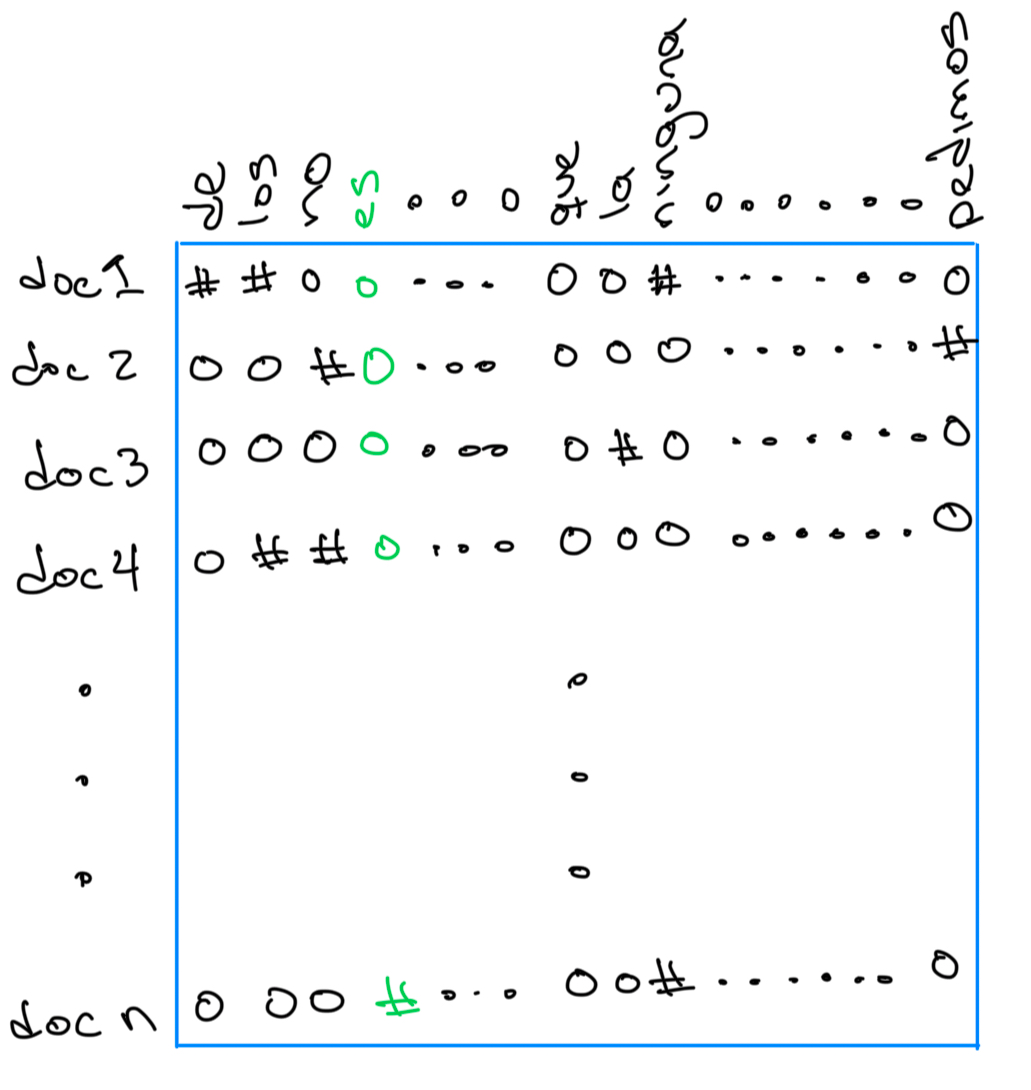 de los no es . . . lo ninguna . . . . . . pedimos
doc 1 # # 0 0 . . . 0 0 # . . . . . . 0
doc 2 0 0 # 0 . . . 0 0 0 . . . . . . #
doc 3 0 0 0 0 . . . 0 # 0 . . . . . . 0
doc 4 0 # # 0 . . . 0 0 0 . . . . . . 0
. .
. .
. .
doc n 0 0 0 # . . . 0 0 # . . . . . . 0